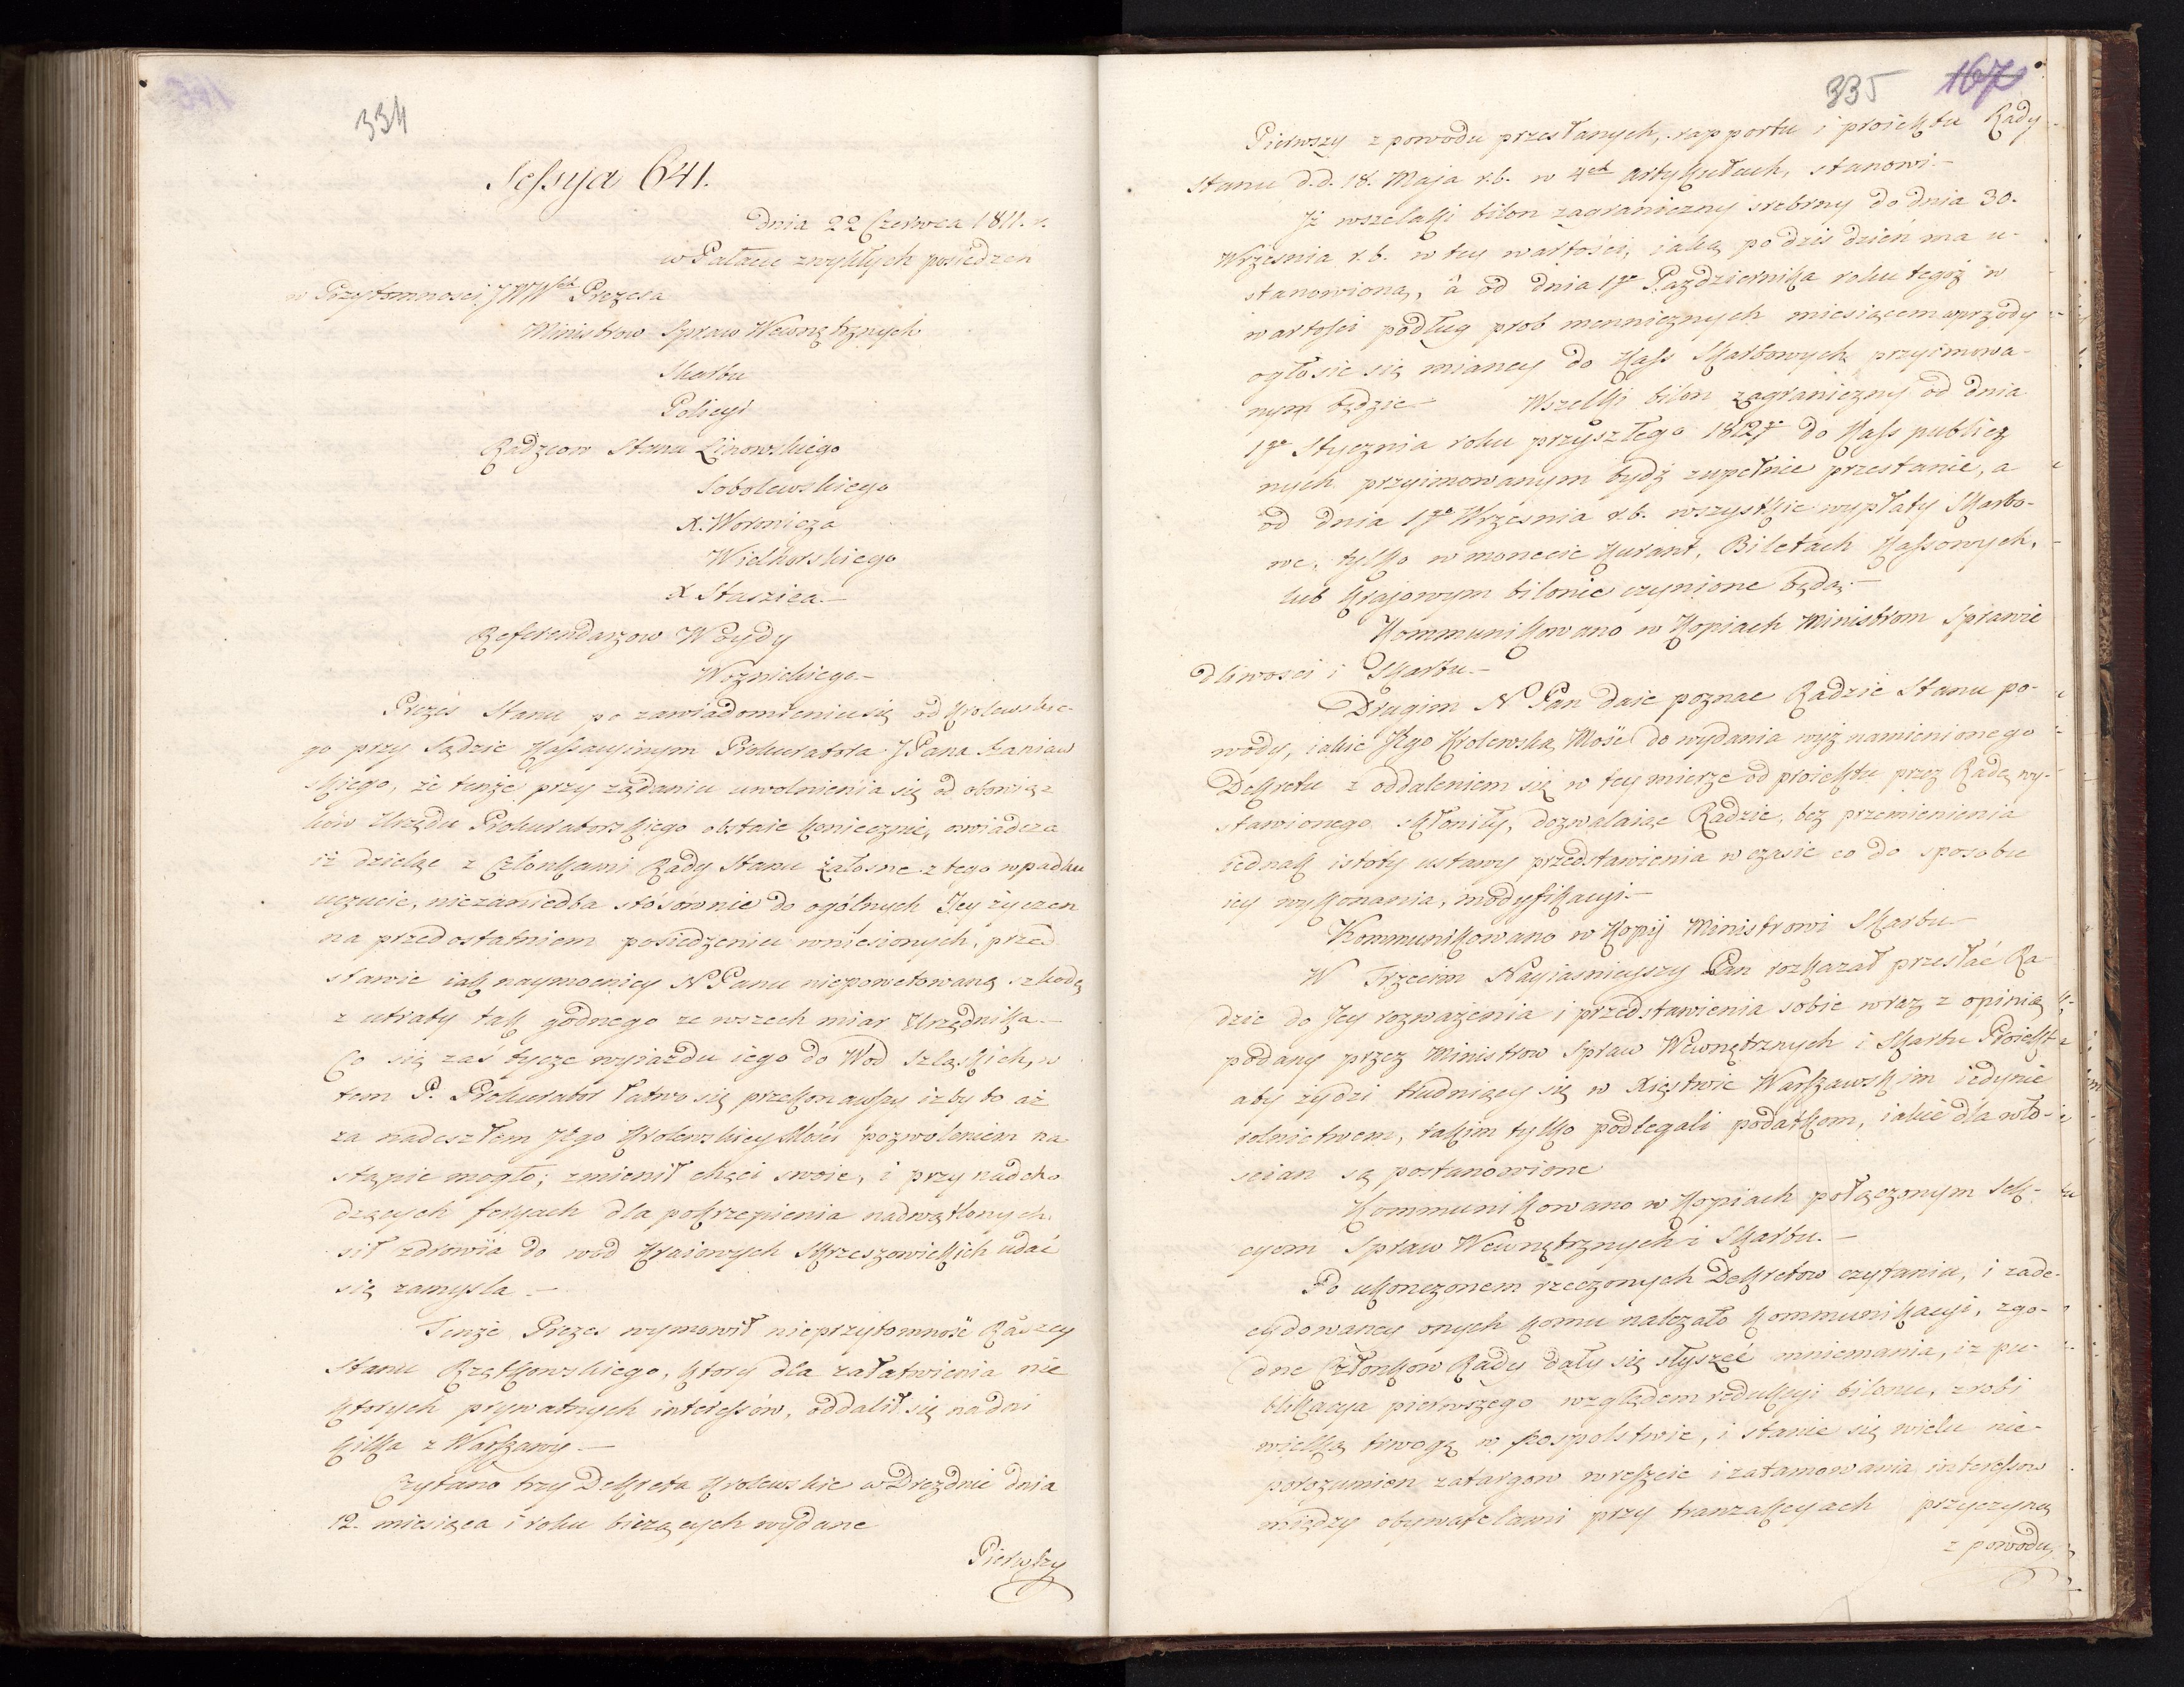 334
Sessya 641.
Dnia 22 Czerwca 1811. r.
w Pałacu zwykłych posiedzeń
w Przytomnosci JWWch Prezesa
Ministrow Spraw Wewnętrznych
Skarbu
Policyi
Radzcow Stanu Linowskiego
Sobolewskiego
X. Woronicza
Wielhorskiego
X Staszica.—
Referendarzow Woydy
Woznickiego.—
Prezes Stanu po zawiadomieniu się od Krolewskie-
go przy Sądzie Kassacyinym Prokuratora JPana Łaniew
skiego, że tenże przy żądaniu uwolnienia się od obowiąz
ków Urzędu Prokuratorskiego obstaie koniecznie, oswiadcza
iż dzieląc z Członkami Rady Stanu żałosne z tego wpadku
uczucie, niezaniedba stósównie do ogólnych Jey życzen
na przedostatniem posiedzeniu wniesionych, przed
stawic iak naymocniey N Panu niepowetowaną szkodę
z utraty tak godnego ze wszech miar Urzędnika.—
Co się zaś tycze wyiazdu iego do Wod Szląskich, w
tem P. Prokurator łatwo się przekonawszy izby to aż
za nadeszłem Jego Krolewskiey Mości pozwoleniem na
stąpic mogło, zmienił chęci swoie, i przy nadcho
dzących feryach dla pokrzepienia nadwątlonych
sił zdrowia do wod Kraiowych Krzeszowickich udać
się zamysla.—
Tenże Prezes wymowił nieprzytomność Radzcy
Stanu Rzętkowskiego, ktory dla załatwienia nie
ktorych prywatnych interessów, oddalił się na dni
kilka z Warszawy.—
Czytano trzy Dekreta Krolewskie w Dreznie dnia
12. miesiąca i roku bieżących wydane
Pierwszy
335 167
Pierwszy z powodu przesłanych, rapportu i proiektu Rady
Stanu d.d. 18. Maja r.b. w 4ch Artykułach, stanowi.—
Jż wszelaki bilon zagraniczny srebrny do dnia 30.
Wrzesnia r.b. w tey wartości, iaką po dzis dzień ma u-
stanowioną, a od dnia 1go Pazdziernika roku tegoż w
wartości podług prob menniczych miesiącem wprzody
ogłosic się mianey do Kass Skarbowych przyimowa-
nym będzie— Wszelki bilon zagraniczny od dnia
1go Stycznia roku przyszłego 1812go do Kass publicz
nych przyimowanym bydź zupełnie przestanie, a
od dnia 1go Wrzesnia r.b. wszystkie wypłaty Skarbo-
we, tylko w monecie Kurant, Biletach Kassowych,
lub Krajowym bilonie czynione będą.—
Kommunikowano w Kopiach Ministrom Sprawie
dliwosci i Skarbu.—
Drugim N Pan daie poznac Radzie Stanu po-
wody, iakie Jego Krolewską Mość do wydania wyż namienionego
Dekretu z oddaleniem się w tey mierze od proiektu przez Radę wy-
stawionego skłoniły, dozwalaiąc Radzie, bez przemienienia
iednak istoty ustawy przedstawienia w czasie co do sposobu
iey wykonania, modyfikacyi.—
Kommunikowano w Kopij Ministrowi Skarbu—
W Trzecim Nayiasnieyszy Pan rozkazał przesłać Ra
dzie do Jey rozważenia i przedstawienia sobie wraz z opinią
podany przez Ministrow Spraw Wewnętrznych i Skarbu Proiekt
aby żydzi trudniący się w Xięstwie Warszawskim iedynie
rolnictwem, takim tylko podlegali podatkom, iakie dla wło-
scian są postanowione
Kommunikowano w Kopiach połączonym Sek-
cyom Spraw Wewnętrznych i Skarbu.—
Po ukonczonem rzeczonych Dekretow czytaniu, i zade-
cydowaney onych komu należało kommunikacyi, zgo-
dne Członkow Rady dały się słyszeć mniemania, iz pu-
blikacya pierwszego względem redukcyi bilonu, zrobi
wielką trwogę w pospolstwie, i stanie się wielu nie-
porozumien zatargow wreszcie i zatamowania interessow
między obywatelami przy tranzakcyach przyczyną
z powodu